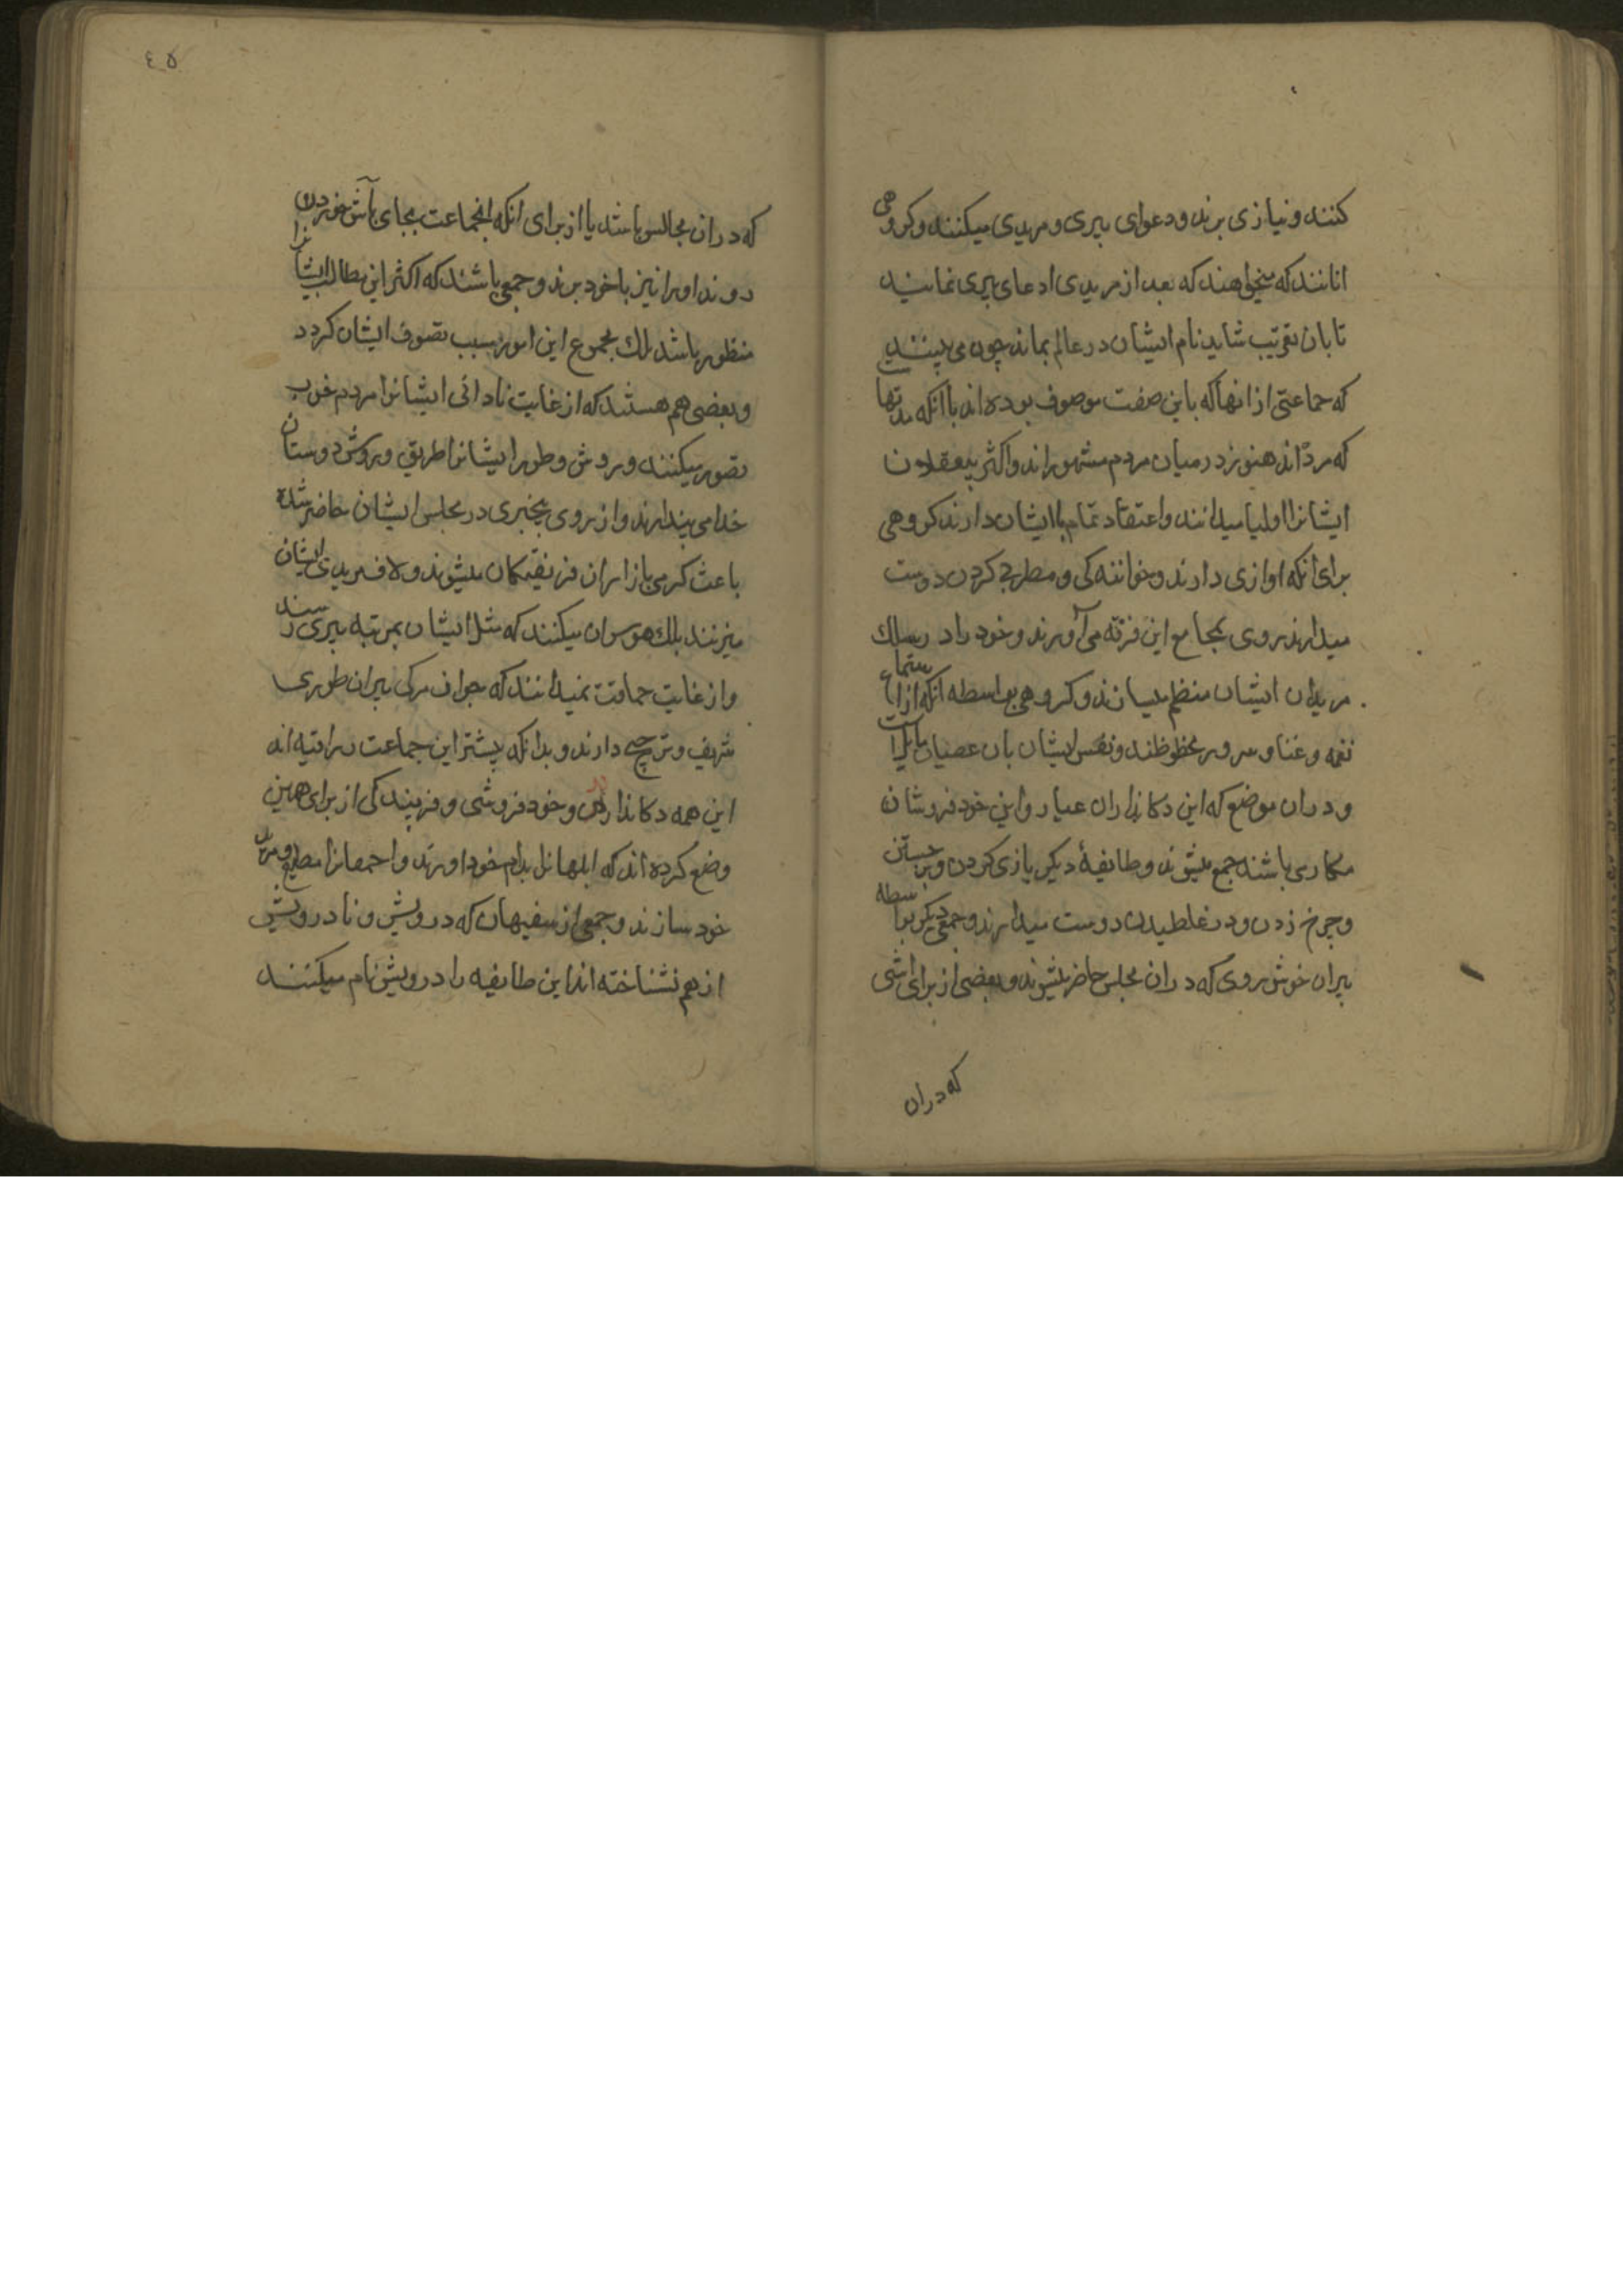 کنند و نیازی برند و دعوای پیری و مریدی میکنند و کروهی
انانند که میخواهند که بعد از مریدی ادعای پیری نمایند
تا بان تقریب شاید نام ایشان در عالم بماند چون می بینند
که جماعتی از انها که باین صفت موصوف بوده اند با انکه مدتها
که مرد اند هنوز در میان مردم مشهوراند و اکثر بیعقلان
ایشانرا اولیا میدانند و اعتقاد تمام با ایشان دارند کروهی
برای انکه اوازی دارند و خوانندکی و مطربی کردن دوست
میدارند روی بمجامع این فرقه می آورند و خود را در سلك
مریدان ایشان منتظم میسازند و کروهی بواسطه انکه از استماع
نغمه و غنا و سرور محظوظند و نفس ایشان بان عصیان مایل است
و دران موضع که این دکانداران عیار و این خود فروشان
مکار می باشند جمع میشوند و طایفهٔ دیکر بازی کردن و برجستن
و چرخ زدن و در غلطیدن دوست میدارند و جمعی دیکر بواسطه
پیران خوش روی که دران مجلس حاضر میشوند و بعضی از برای اشی
که دران
٤٥
که دران مجالس باشد یا از برای انکه انجماعت بجای بآش خوردن
روند او را نیز با خود برند و جمعی باشند که اکثر این مطالب ایشانرا
منظور باشد بلك مجموع این امور سبب تصوف ایشان کردد
و بعضی هم هستند که از غایت نادانی ایشانرا مردم خوب
تصور میکنند و روش و طور ایشانرا طریق و روش دوستان
خدا می پندارند و از روی بیخبری در مجلس ایشان حاضر شده
باعث کرمی بازار ان فریفتکان میشوند و لاف مریدی ایشان
میزنند بلك هوس ان میکنند که مثل ایشان بمرتبه پیری رسند
و از غایت حماقت نمیدانند که جوان مرکی بپیران طوری
شریف و ترجیح دارند و بدانکه پیشتر این جماعت
این همه دکانداری و خود فروشی و فریبندکی از برای همین
وضع کرده اند که ابلهانرا بدام خود اورند و احمقانرا مطیع و مرید
خود سازند و جمعی از سفیهان که درویش و نادرویش
از هم نشناخته اند این طایفه را درویش نام میکنند